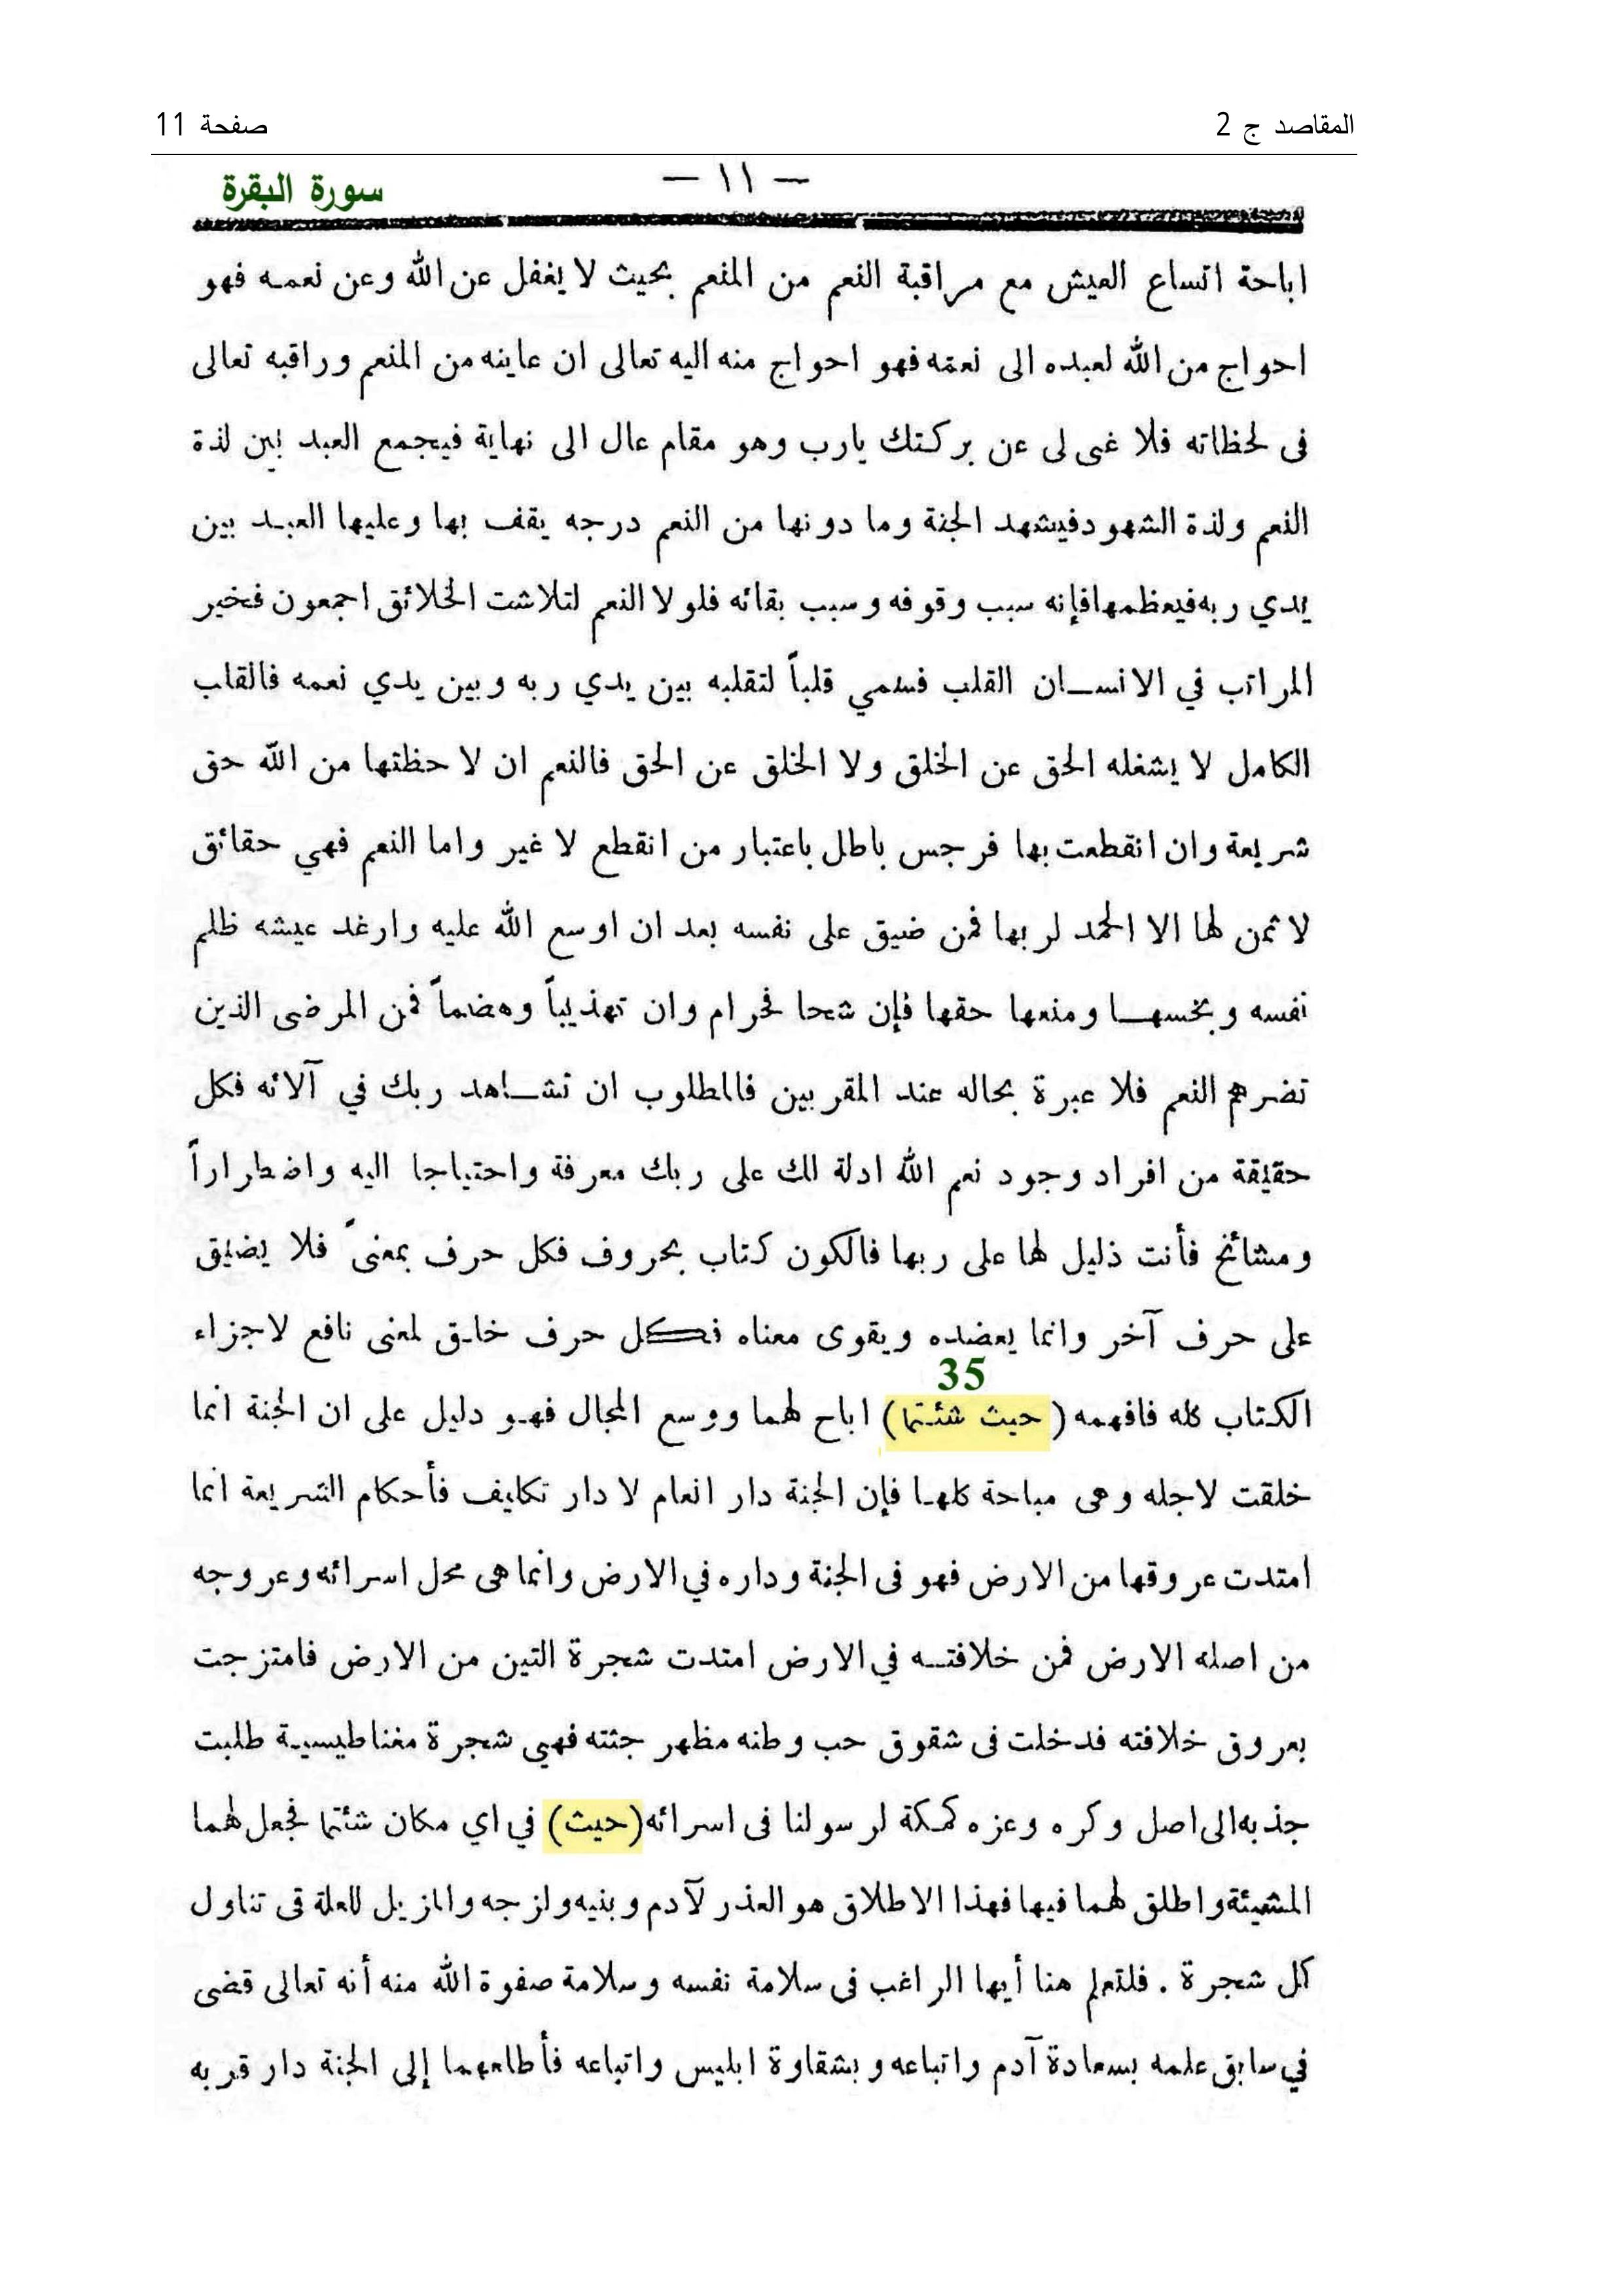 المقاصد ج 2
صفحة 11
— ١١ —
سورة البقرة
اباحة اتساع العيش مع مراقبة النعم من المنعم بحيث لا يغفل عن الله وعن نعمه فهو
احواج من الله لعبده الى نعمه فهو احواج منه اليه تعالى ان عاينه من المنعم وراقبه تعالى
فى لحظاته فلا غى لى عن بركتك يارب وهو مقام عال الى نهاية فيجمع العبد بين لذة
النعم ولذة الشهود فيشهد الجنة وما دونها من النعم درجه يقف بها وعليها العبد بين
يدي ربه فيعظمها فإنه سبب وقوفه وسبب بقائه فلولا النعم لتلاشت الخلائق اجمعون فخير
المراتب في الانسان القلب فسمي قلباً لتقلبه بين يدي ربه وبين يدي نعمه فالقلب
الكامل لا يشغله الحق عن الخلق ولا الخلق عن الحق فالنعم ان لاحظتها من الله حق
شريعة وان انقطعت بها فرجس باطل باعتبار من انقطع لا غير واما النعم فهي حقائق
لا ثمن لها الا الحمد لربها فمن ضيق على نفسه بعد ان اوسع الله عليه وارغد عيشه ظلم
نفسه وبخسها ومنعها حقها فإن شحا فحرام وان تهذيباً وهضماً فمن المرضى الذين
تضرهم النعم فلا عبرة بحاله عند المقربين فالمطلوب ان تشاهد ربك في آلائه فكل
حقيقة من افراد وجود نعم الله ادلة لك على ربك معرفة واحتياجا اليه واضطراراً
ومشائخ فأنت ذليل لها على ربها فالكون كتاب بحروف فكل حرف بمعنىً فلا يضيق
على حرف آخر وانما يعضده ويقوى معناه فكل حرف خلق لمعنى نافع لاجزاء
35
الكتاب كله فافهمه (حيث شئتما) اباح لهما ووسع المجال فهو دليل على ان الجنة انما
خلقت لاجله وهى مباحة كلها فإن الجنة دار انعام لا دار تكليف فأحكام الشريعة انما
امتدت عروقها من الارض فهو فى الجنة وداره في الارض وانما هى محل اسرائه وعروجه
من اصله الارض فمن خلافته في الارض امتدت شجرة التين من الارض فامتزجت
بعروق خلافته فدخلت فى شقوق حب وطنه مظهر جثته فهي شجرة مغناطيسية طلبت
جذبه الى اصل وكره وعزه كمكة لرسولنا فى اسرائه (حيث) في اي مكان شئتما فجعل لهما
المشيئة واطلق لهما فيها فهذا الاطلاق هو العذر لآدم وبنيه ولزجه والمزيل للعلة فى تناول
كل شجرة . فلتعلم هنا أيها الراغب فى سلامة نفسه وسلامة صفوة الله منه أنه تعالى قضى
في سابق علمه بسعادة آدم واتباعه وبشقاوة ابليس واتباعه فأطلعهما إلى الجنة دار قربه